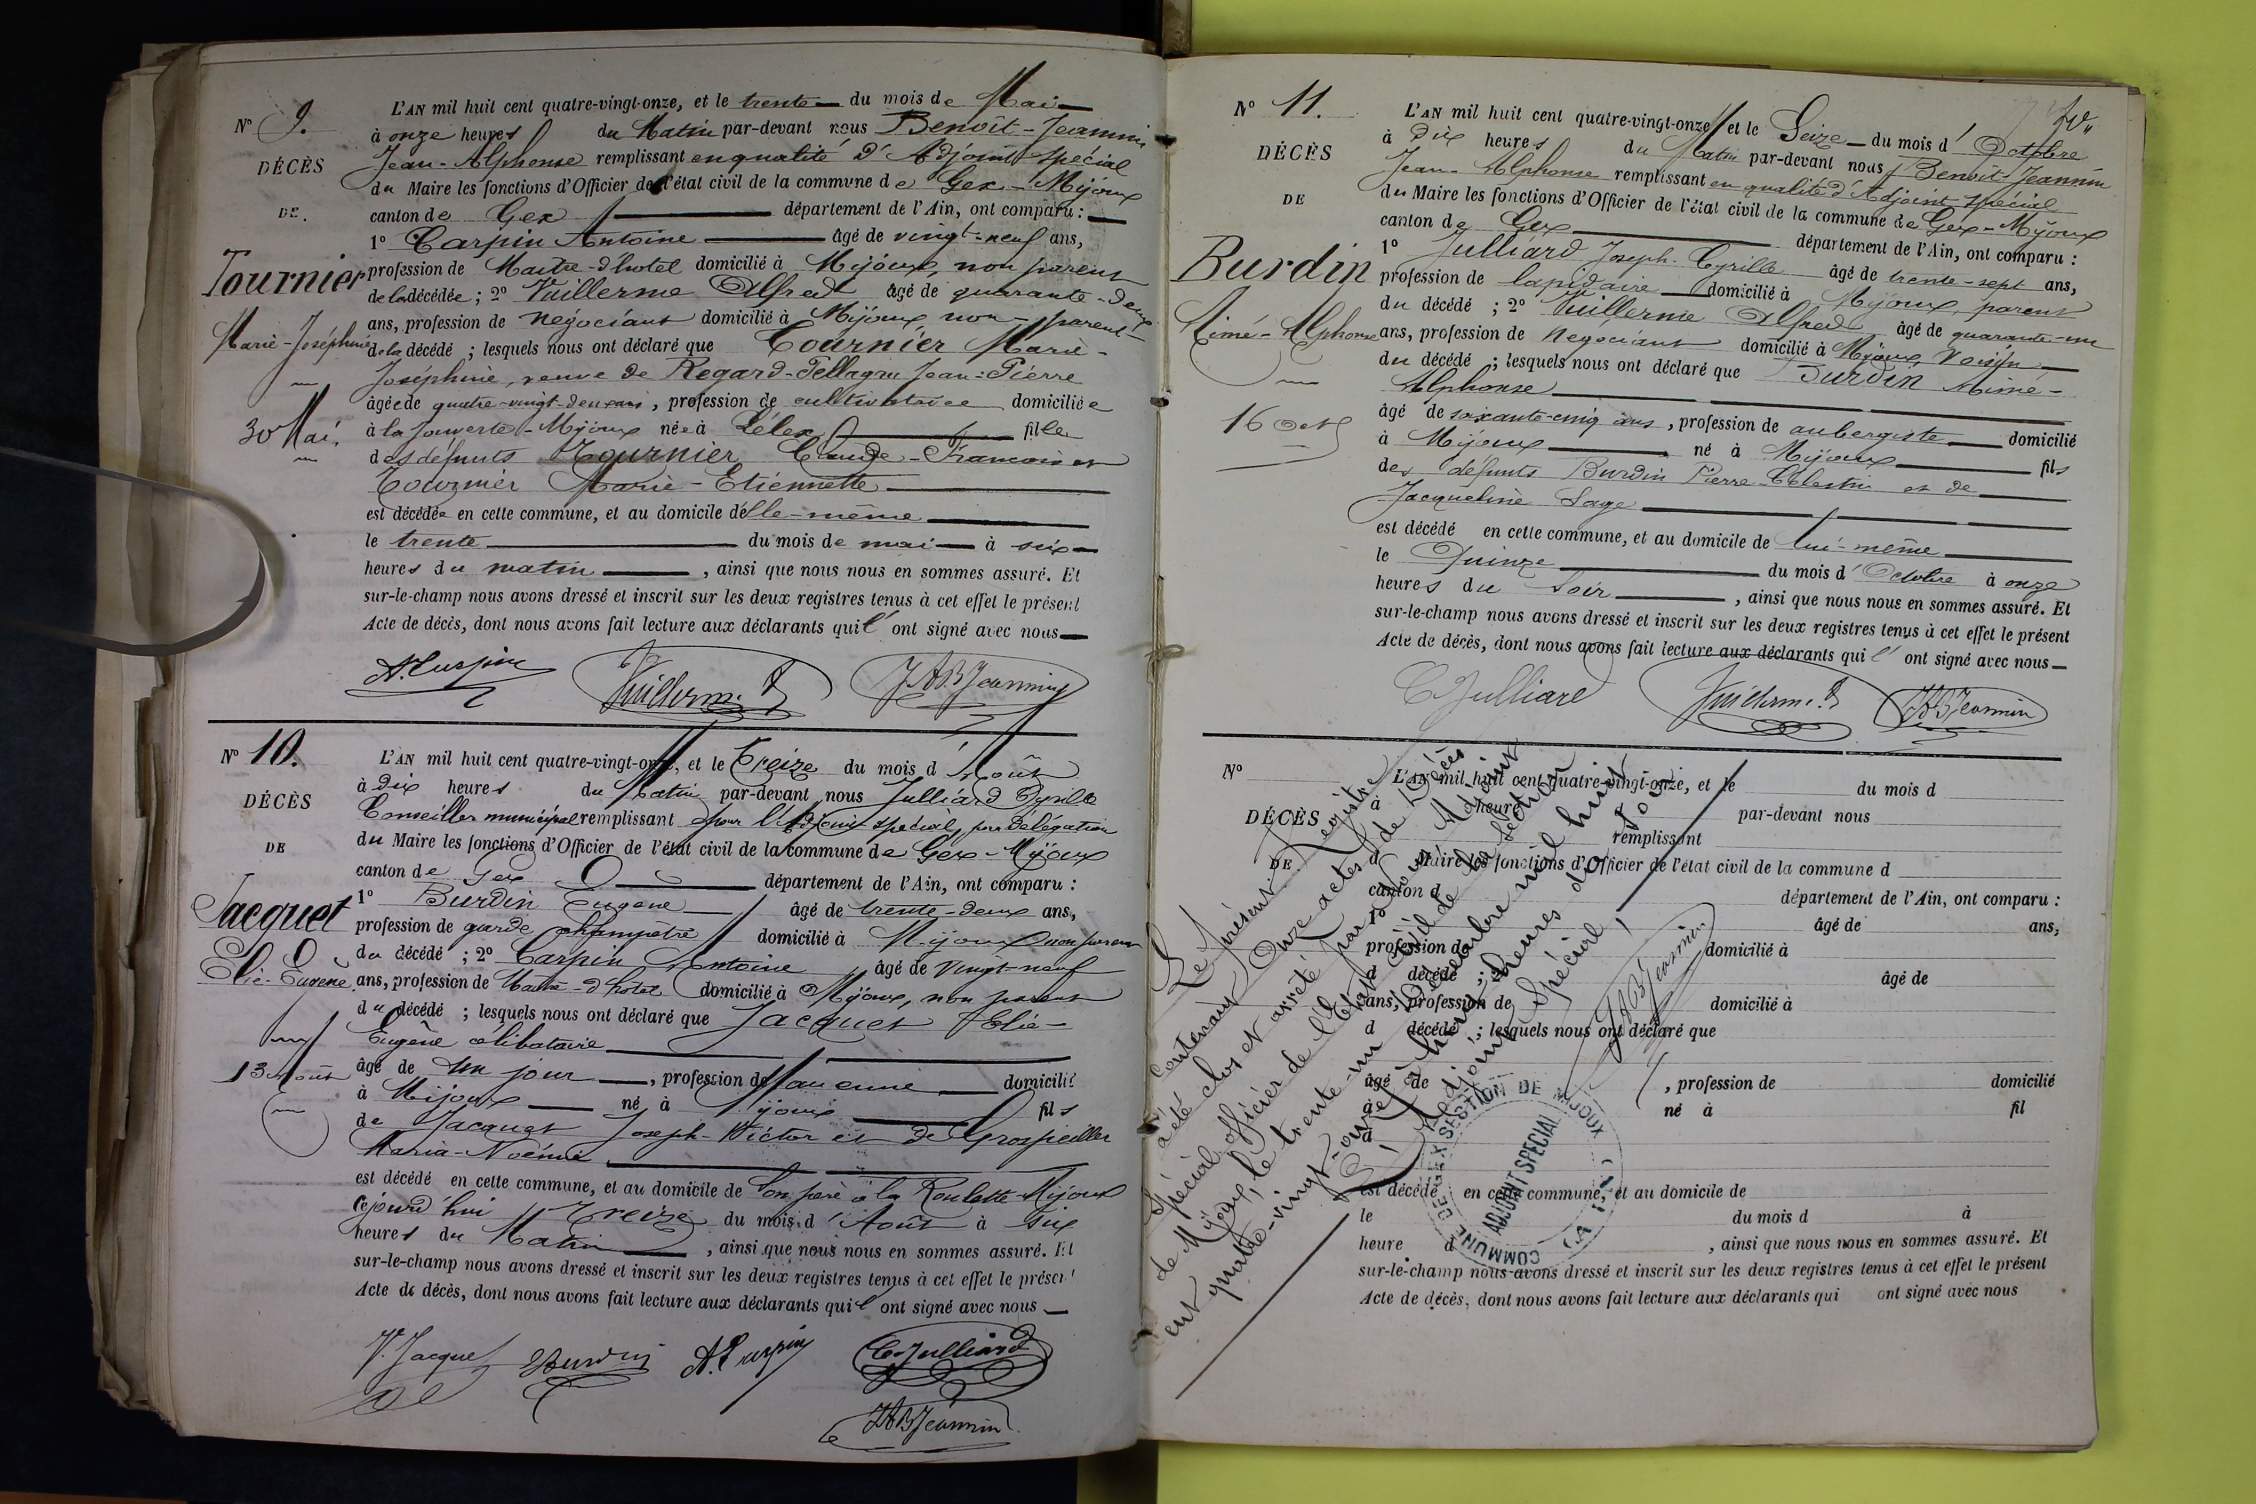 N° 9.
DÉCÈS
DE
Tournier
Marie-Joséphine
30 Mai.
L'AN mil huit cent quatre-vingt-onze, et le trente du mois de Mai
à onze heures du Matin par-devant nous Benoît-Jeannin
Jean-Alphonse remplissant en qualité d'Adjoint spécial
du Maire les fonctions d'Officier de l'état civil de la commune de Gex-Mijoux
canton de Gex département de l'Ain, ont comparu :
1° Carpin Antoine âgé de vingt-neuf ans,
profession de Maître-d'hotel domicilié à Mijoux, non parent
de la décédée ; 2° Vuillerme Alfred âgé de quarante-deux
ans, profession de négociant domicilié à Mijoux non-parent
de la décédé ; lesquels nous ont déclaré que Tournier Marie-
Joséphine, veuve de Regard-Pellagru Jean-Pierre
âgée de quatre-vingt-deux ans, profession de cultivatrice domiciliée
à la Jouverte-Mijoux née à Lélex fille
des défunts Tournier Claude-François et
Tournier Marie-Etiennette
est décédée en cette commune, et au domicile d'elle-même
le trente du mois de mai à six
heures du matin , ainsi que nous nous en sommes assuré. Et
sur-le-champ nous avons dressé et inscrit sur les deux registres tenus à cet effet le présent
Acte de décès, dont nous avons fait lecture aux déclarants qui l' ont signé avec nous
A. Carpin Vuillerme A JABJeannin
N° 10.
DÉCÈS
DE
Jacquet
Elie-Eugène
13 Août
L'AN mil huit cent quatre-vingt-onze, et le Treize du mois d'Août
à Dix heures du Matin par-devant nous Julliard Cyrille
Conseiller municipal remplissant pour l'Adjoint spécial, par Délégation
du Maire les fonctions d'Officier de l'état civil de la commune de Gex-Mijoux
canton de Gex département de l'Ain, ont comparu :
1° Burdin Eugène âgé de trente-deux ans,
profession de garde champêtre domicilié à Mijoux non parent
du décédé ; 2° Carpin Antoine âgé de vingt-neuf
ans, profession de Maître-d'hotel domicilié à Mijoux, non parent
du décédé ; lesquels nous ont déclaré que Jacquet Elie-
Eugène célibataire
âgé de un jour , profession d'aucune domicilié
à Mijoux né à Mijoux fils
de Jacquet Joseph-Victor et de Grospiellier
Maria-Noémie
est décédé en cette commune, et au domicile de son père à la Roulette-Mijoux
cejourd'hui Treize du mois d'Août à six
heures du Matin , ainsi que nous nous en sommes assuré. Et
sur-le-champ nous avons dressé et inscrit sur les deux registres tenus à cet effet le présent
Acte de décès, dont nous avons fait lecture aux déclarants qui l' ont signé avec nous
V. Jacquet EBurdin A. Carpin C. Julliard
JABJeannin
N° 11.
DÉCÈS
DE
Burdin
Aimé-Alphonse
16 Oct
L'AN mil huit cent quatre-vingt-onze, et le Seize du mois d'Octobre
à Dix heures du Matin par-devant nous Benoît-Jeannin
Jean-Alphonse remplissant en qualité d'Adjoint spécial
du Maire les fonctions d'Officier de l'état civil de la commune de Gex-Mijoux
canton de Gex département de l'Ain, ont comparu :
1° Julliard Joseph-Cyrille âgé de trente-sept ans,
profession de lapidaire domicilié à Mijoux, parent
du décédé ; 2° Vuillerme Alfred âgé de quarante-un
ans, profession de Négociant domicilié à Mijoux Voisin
du décédé ; lesquels nous ont déclaré que Burdin Aimé-
Alphonse
âgé de soixante-cinq ans, profession de aubergiste domicilié
à Mijoux né à Mijoux fils
des défunts Burdin Pierre-Célestin et de
Jacqueline Sage
est décédé en cette commune, et au domicile de lui-même
le Quinze du mois d'Octobre à onze
heures du Soir , ainsi que nous nous en sommes assuré. Et
sur-le-champ nous avons dressé et inscrit sur les deux registres tenus à cet effet le présent
Acte de décès, dont nous avons fait lecture aux déclarants qui l' ont signé avec nous
C Julliard Vuillerme A JABJeannin
N°
DÉCÈS
DE
L'AN mil huit cent quatre-vingt-onze, et le du mois d
à heure par-devant nous
remplissant
d Maire les fonctions d'Officier de l'état civil de la commune d
canton d département de l'Ain, ont comparu :
1° âgé de ans,
profession de domicilié à
d décédé ; 2° âgé de
ans, profession de domicilié à
d décédé ; lesquels nous ont déclaré que
âgé de , profession de domicilié
à né à fil
d
est décédé en cette commune, et au domicile de
le du mois d à
heure d , ainsi que nous nous en sommes assuré. Et
sur-le-champ nous avons dressé et inscrit sur les deux registres tenus à cet effet le présent
Acte de décès, dont nous avons fait lecture aux déclarants qui ont signé avec nous
Le présent Registre
contenant Onze actes de Décès
a été clos et arrêté par nous Adjoint
Spécial officier de l'Etat civil de la section
de Mijoux, le trente-un Décembre mil huit
cent quatre-vingt-onze, à heures du Soir
L'Adjoint Spécial,
JABJeannin
COMMUNE DE GEX SECTION DE MIJOUX
ADJOINT SPECIAL
(AIN)